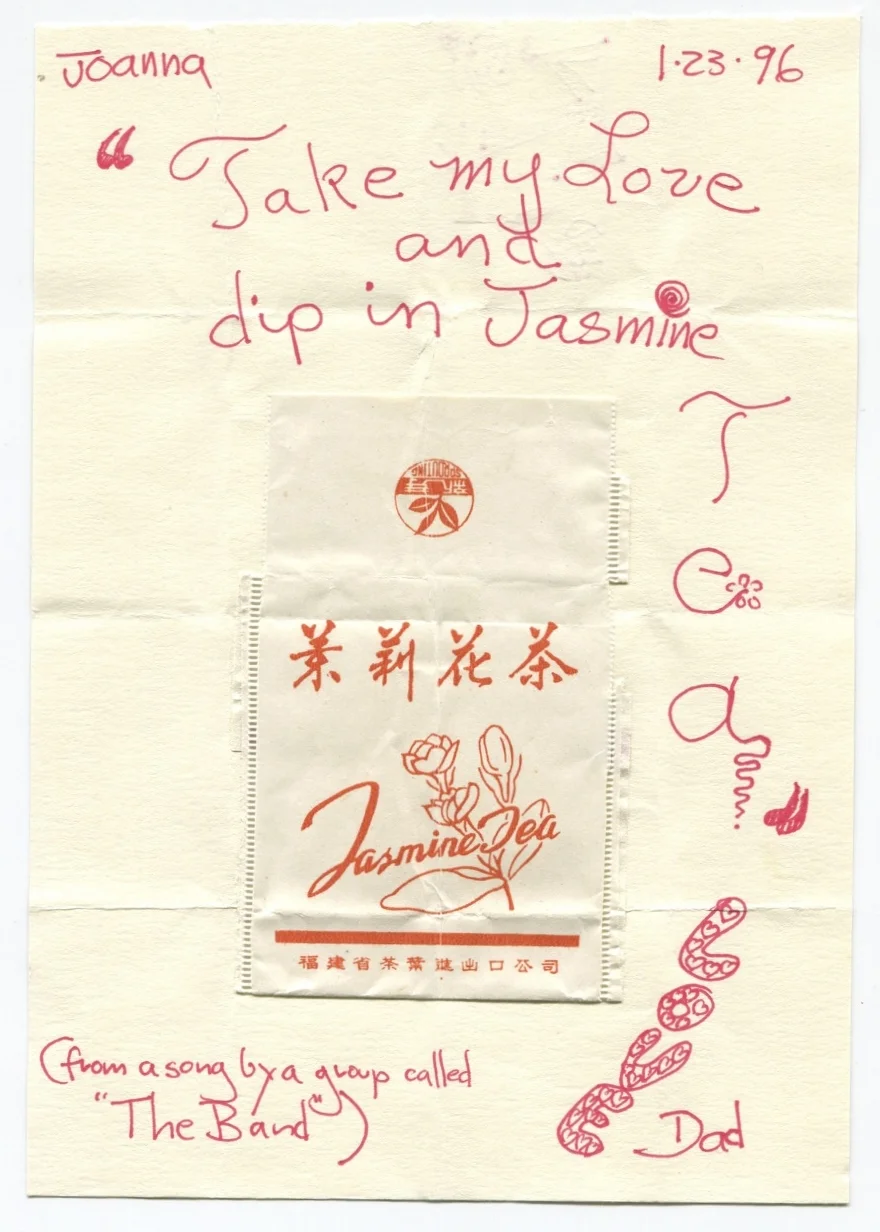 Joanna 1·23·96
" Take my Love
and
dip in Jasmine
Tea "
SPROUTING
茉莉花茶
Jasmine Tea
福建省茶葉進出口公司
(from a song by a group called
"The Band")
LOVE
Dad